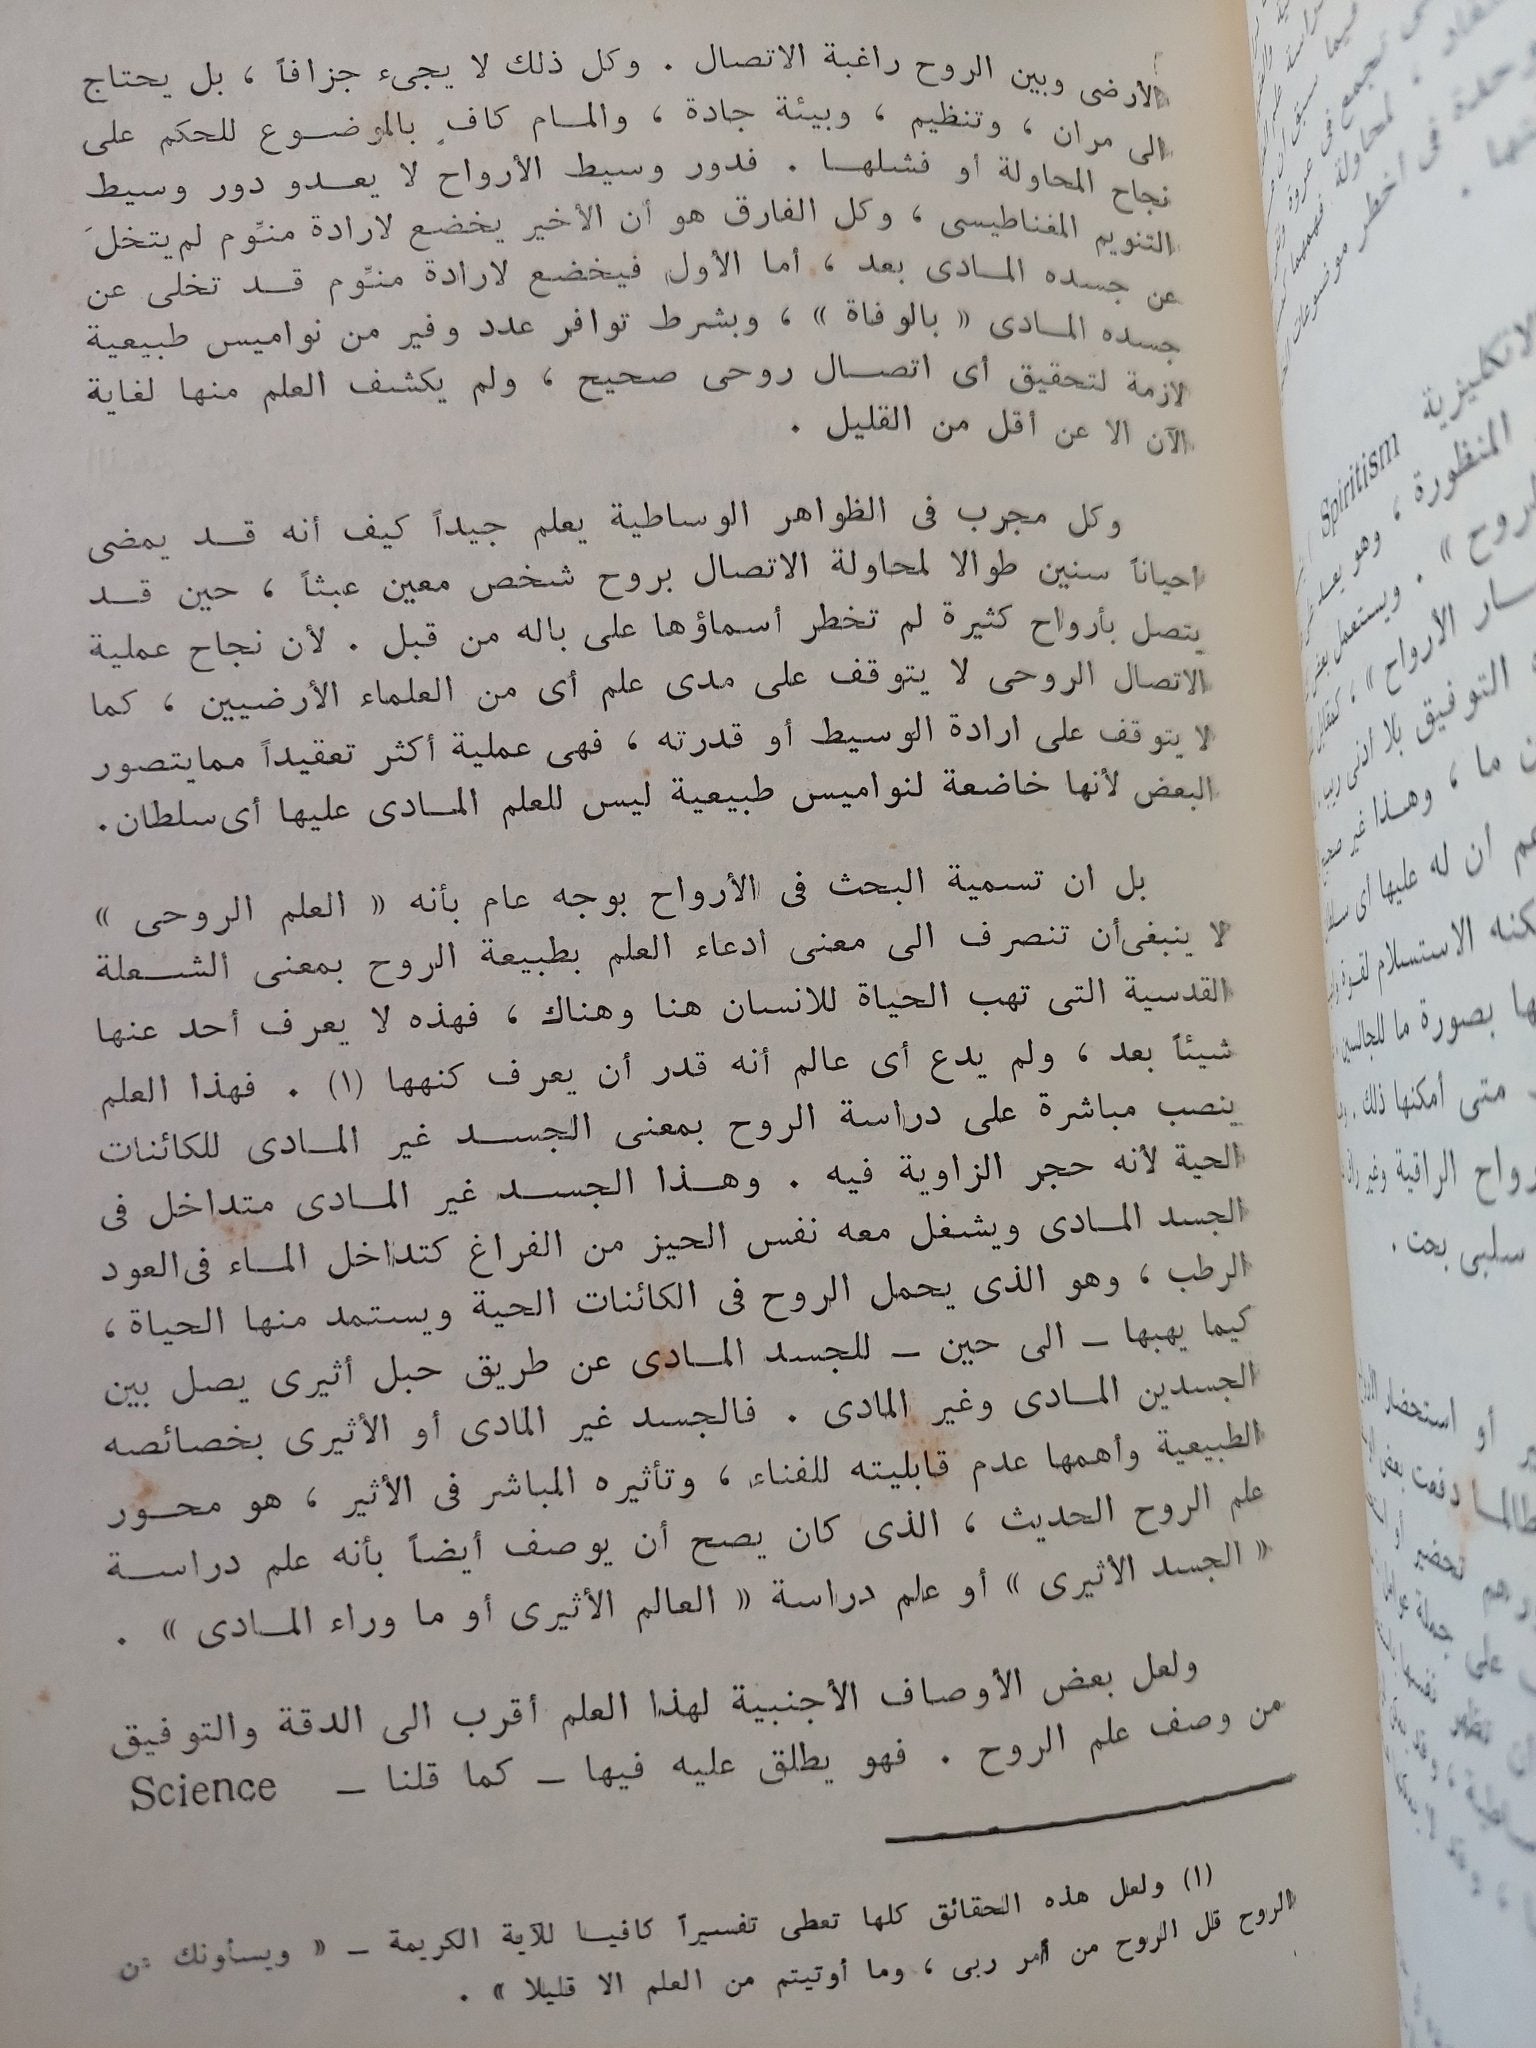 الأرضى وبين الروح راغبة الاتصال . وكل ذلك لا يجىء جزافاً ، بل يحتاج
الى مران ، وتنظيم ، وبيئة جادة ، والمـام كافٍ بالموضـوع للحكم على
نجاح المحاولة أو فشلهـا . فدور وسيط الأرواح لا يعـدو دور وسيط
التنويم المغناطيسى ، وكل الفارق هو أن الأخير يخضع لارادة منوِّم لم يتخلَ
عن جسده المـادى بعد ، أما الأول فيخضع لارادة منوِّم قـد تخلى عن
جسده المـادى « بالوفاة » ، وبشرط توافر عدد وفير من نواميس طبيعية
لازمة لتحقيق أى اتصـال روحى صحيح ، ولم يكشف العلم منها لغاية
الآن الا عن أقل من القليل .
وكل مجرب فى الظواهر الوساطية يعلم جيداً كيف أنه قـد يمضى
احياناً سنين طوالا لمحاولة الاتصال بروح شخص معين عبثاً ، حين قـد
يتصل بأرواح كثيرة لم تخطر أسماؤها على باله من قبل . لأن نجاح عملية
الاتصال الروحى لا يتوقف على مدى علم أى من العلماء الأرضيين ، كما
لا يتوقف على ارادة الوسيط أو قدرته ، فهى عملية أكثر تعقيداً ممايتصور
البعض لأنها خاضعة لنواميس طبيعية ليس للعلم المـادى عليها أى سلطان.
بل ان تسمية البحث فى الأرواح بوجه عام بأنه « العلم الروحى »
لا ينبغى أن تنصرف الى معنى ادعاء العلم بطبيعة الروح بمعنى الشـعلة
القدسية التى تهب الحياة للانسان هنا وهناك ، فهذه لا يعرف أحد عنها
شيئاً بعد ، ولم يدع أى عالم أنه قدر أن يعرف كنهها (١) . فهذا العلم
ينصب مباشرة على دراسة الروح بمعنى الجسـد غير المـادى للكائنات
الحية لأنه حجر الزاوية فيه . وهـذا الجسـد غير المـادى متداخل فى
الجسد المـادى ويشغل معه نفس الحيز من الفراغ كتداخل المـاء فى العود
الرطب ، وهو الذى يحمل الروح فى الكائنات الحية ويستمد منها الحياة ،
كيما يهبها – الى حين – للجسد المـادى عن طريق حبل أثيرى يصل بين
الجسدين المـادى وغير المادى . فالجسد غير المادى أو الأثيرى بخصائصه
الطبيعية وأهمها عدم قابليته للفناء ، وتأثيره المباشر فى الأثير ، هو محـور
علم الروح الحديث ، الذى كان يصح أن يوصف أيضاً بأنه علم دراسـة
« الجسد الأثيرى » أو علم دراسة « العالم الأثيرى أو ما وراء المـادى » .
ولعل بعض الأوصاف الأجنبية لهذا العلم أقرب الى الدقة والتوفيق
من وصف علم الروح . فهو يطلق عليه فيها – كما قلنا – Science
(١) ولعل هذه الحقائق كلها تعطى تفسيراً كافيـا للآية الكريمة – « ويسأونك عن
الروح قل الروح من أمر ربى ، وما أوتيتم من العلم الا قليلا » .
الانكليزية Spiritism
المنظورة ، وهو يعـد
الروح » . ويستعمل بعض
الأرواح » ، كمقابل
التوفيق بلا ادنى ريب
ن ما ، وهـذا غير صحيح
ان له عليها أى
الاستسلام لقـوة
بصورة ما للجالسين
متى أمكنها ذلك .
الراقية وغير
سلبى بحت .
أو استحضار
دفعت بعض